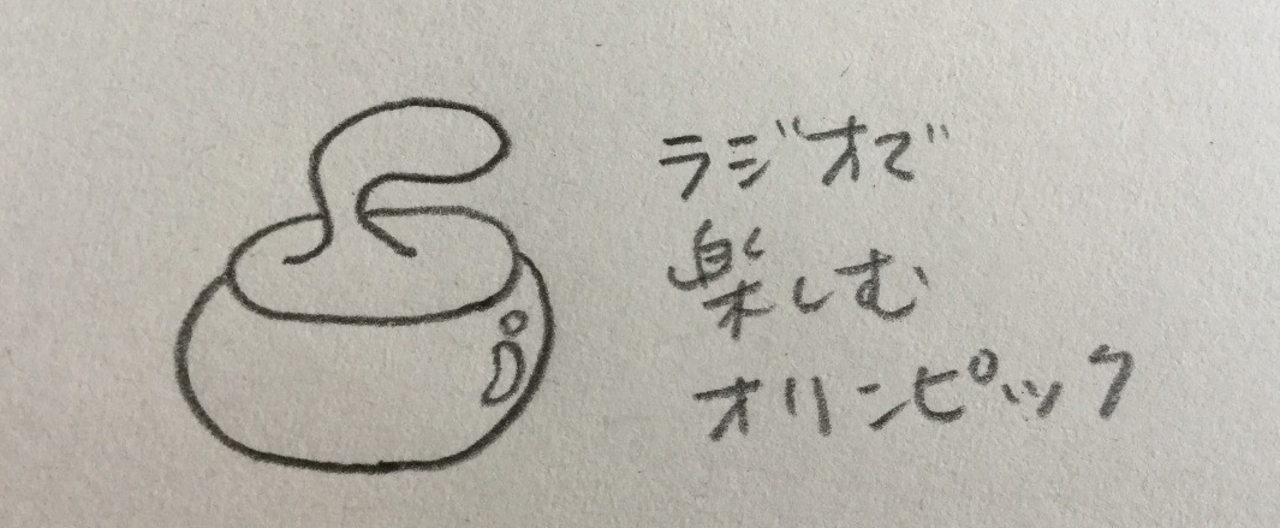 ラジオで
楽しむ
オリンピック